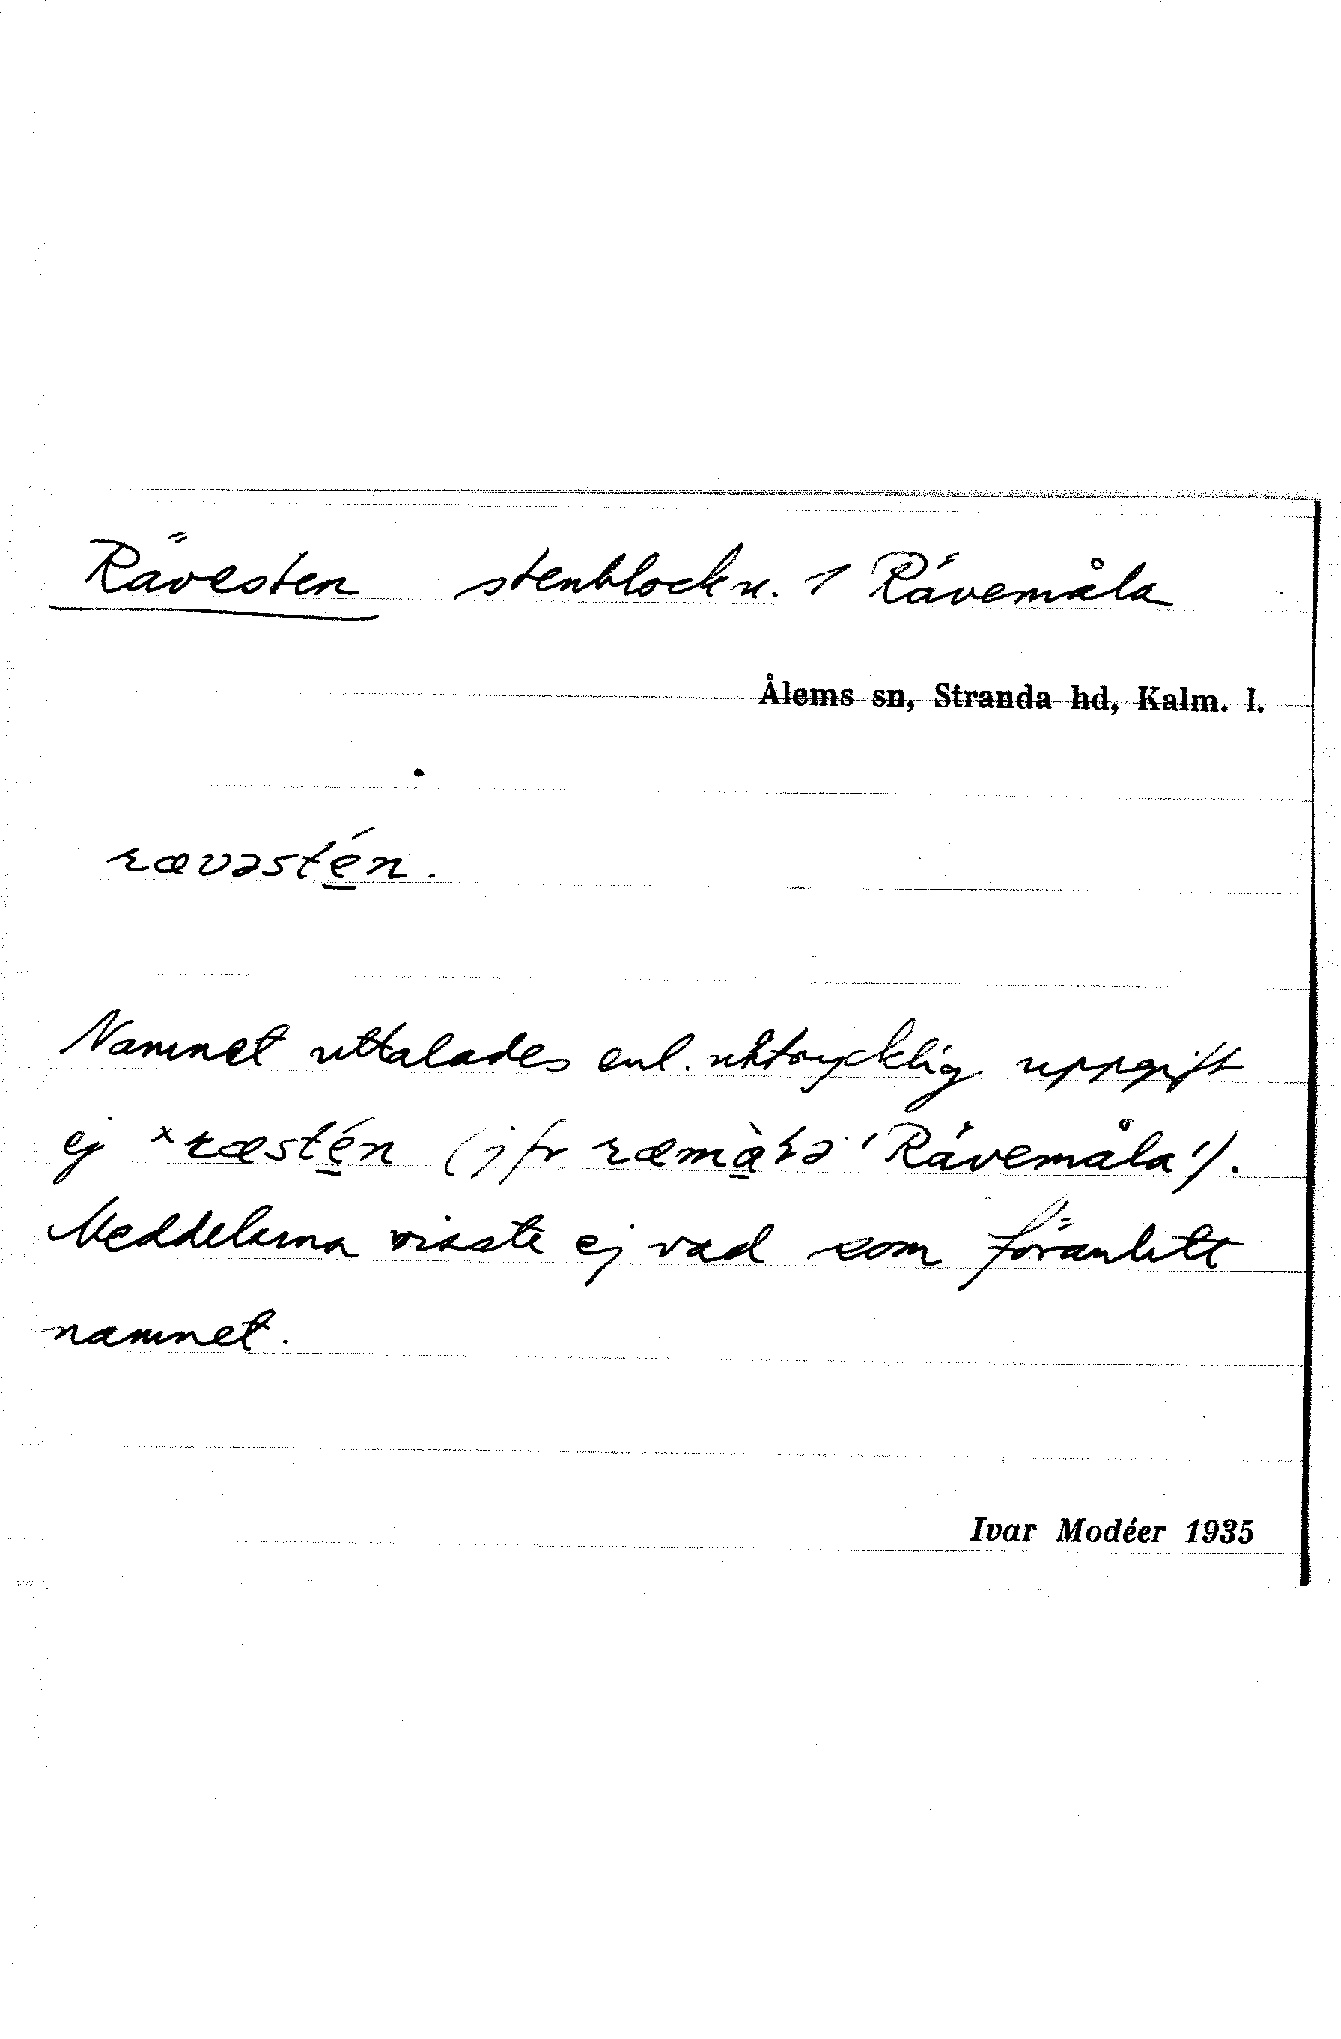 Rävesten stenblock n. 1 Rävemåla
Ålems sn, Stranda hd, Kalm. l.
rævəstén.
Namnet uttalades enl. uttrycklig uppgift
ej ×ræstén (jfr ræmàɫə 'Rävemåla').
Meddelarna visste ej vad som föranlett
namnet.
Ivar Modéer 1935